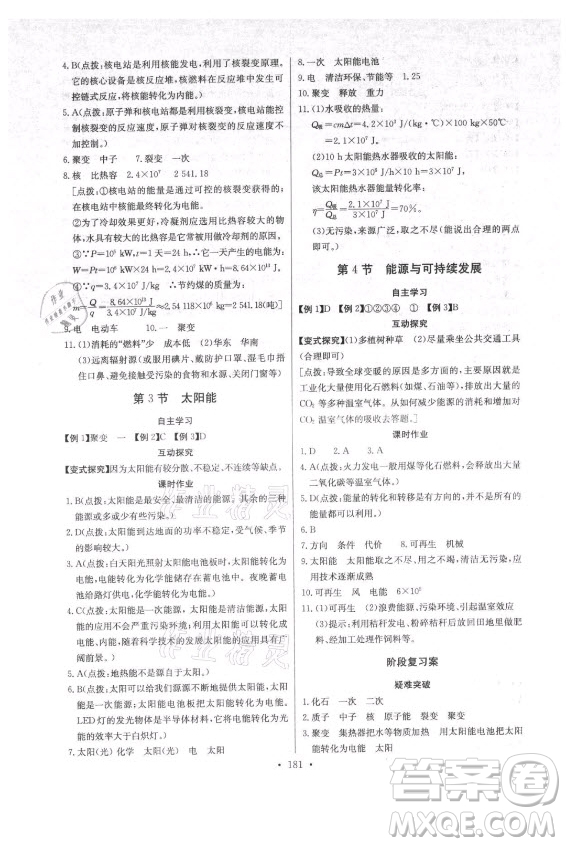 4. B(点拨：核电站是利用核能发电，利用了核裂变原理。
它的核心设备是核反应堆，核燃料在反应堆中发生可
控链式反应，将核能转化为电能。)
5. A(点拨：原子弹和核电站都是利用核裂变，核电站能控
制核裂变的反应速度，原子弹不能控制核裂变的反应
速度。)
6. 聚变 中子 7. 裂变 一次
8. 核 比热容 2.4×10⁷ 2 541.18
[点拨：①核电站的能量是通过可控的核裂变获得的；
在核电站中，核能最终转化为电能。
②为了冷却效果更好，冷凝剂应选用比热容较大的物
质，水具有比热容较大的特点，是常用的冷凝剂的原因。
9. 电 电动车 10. 一 聚变
11. (1)消耗的“燃料”少 成本低 (2)华东 华南
(3)远离辐射源(或服用碘片、戴防护口罩、湿毛巾捂
住口鼻、避免吃可能受污染的食物、体表防护等)
第 3 节 太阳能
自主学习
【例 1】聚变 一 【例 2】C 【例 3】D
互动探究
[变式探究]因为太阳能有较分散、不稳定、不连续等缺点。
课时作业
1. B(点拨：太阳能是最安全、最清洁的能源。其余三种
能源或多或少有些污染。)
2. D(点拨：太阳能到达地面的功率不稳定、受气候、季节
的影响大。)
3. B(点拨：白天阳光照射太阳能电池板时，太阳能转化为
电能；电能转化为化学能储存在蓄电池中。夜晚蓄电
池给路灯供电，化学能转化为电能。)
4. C(点拨：太阳能是一次能源，清洁无污染。太阳能的应
用不会严重污染环境。太阳能电池将太阳能直接转化
为电能，随着科学技术的发展太阳能的应用具有广
阔前景。)
5. A(点拨：地热能不是源自于太阳能。)
6. A(点拨：太阳可以给我们源源不断地提供太阳能，太阳
能是可再生能源，太阳能电池板把太阳能转化为电能。
LED灯的发光物体是半导体材料，它是直接把电能转化为光能的
效率大于白炽灯。)
7. 太阳(光) 化学 太阳(光) 电 太阳能
8. 一次 太阳能电池
9. 电 清洁环保、节能等 1.25
10. 聚变 释放 重力
11. (1)水吸收的热量：
=2.1×10⁷ J
(2)10 h太阳能热水器吸收的太阳能：
则太阳能热水器的能量转化率：
(3)无污染，来源广泛，取之不尽(能说出合理的两点
即可)。
第 4 节 能源与可持续发展
自主学习
【例 1】D 【例 2】①②③④ ① 【例 3】B
互动探究
[变式探究](1)多植树种草 (2)尽量乘坐公共交通工具
(合理即可)
[点拨：导致全球变暖的原因有很多方面，主要的原因是
工业化大量使用化石燃料(如煤、石油等)，排放大量的
CO₂ 等温室气体造成的。从如何减少化石燃料的使用、减少
CO₂ 温室气体的吸收去答题。]
课时作业
1. D 2. A
3. A(点拨：火力发电一般用煤等化石燃料，会释放出大量
二氧化碳等温室气体。)
4. C
5. D(点拨：能量的转化和转移是有方向性的，不是所有
能量都可以利用的。)
6. B
7. 方向 条件 代价 8. 可再生
9. 太阳能 太阳能取之不尽、用之不竭，清洁无污染，应用
技术逐渐成熟
10. 可再生 风 电能 6×10⁵
11. (1)可再生 (2)浪费能源，污染环境，引起温室效应
(3)例如：利用秸秆发电，粉碎秸秆后回田增加有机
肥，加工处理后作饲料等。
阶段复习案
疑难突破
1. 化石 一次 二次
2. 质子 中子 核 原子能 裂变 聚变
3. 聚变 集热器把水等物质加热 用太阳能电池把太阳能
转化为电能
• 181 •
作业精灵
答案圈
MXQE.COM